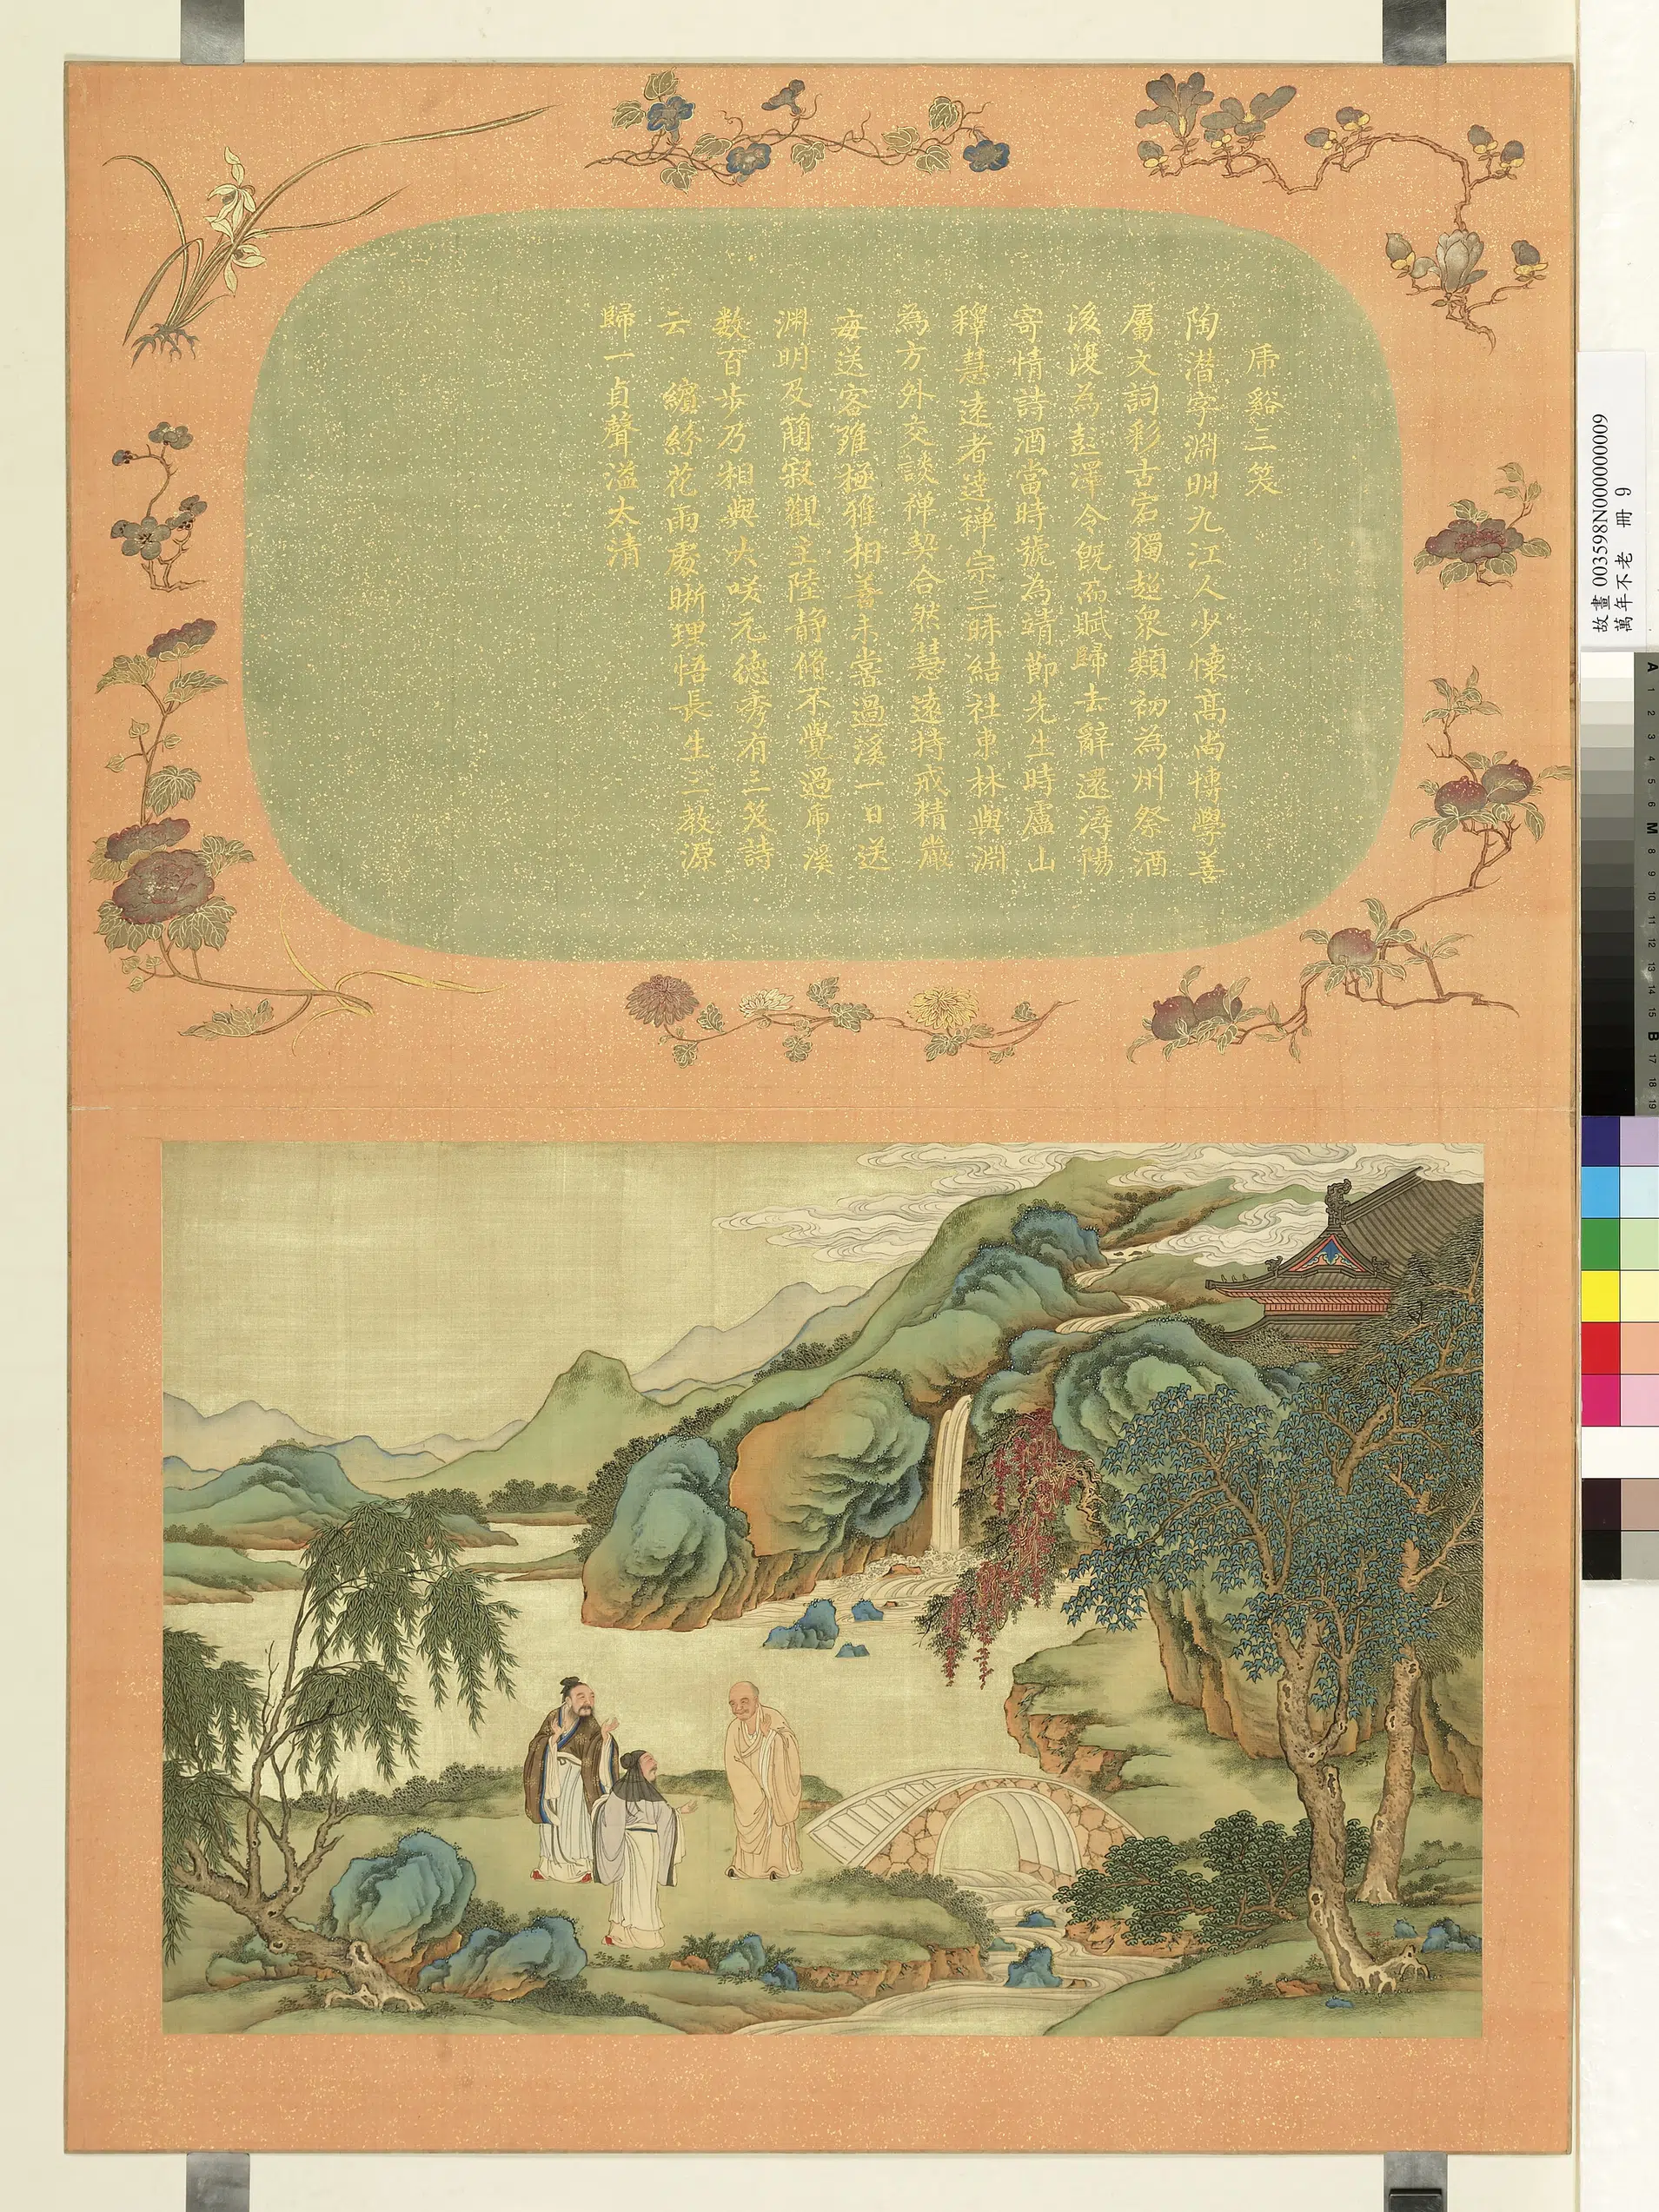 虎谿三笑
陶潜字淵明九江人少懷高尚博學善
屬文詞彩古宕獨超衆類初為州祭酒
後復為彭澤令既而賦歸去辭還潯陽
寄情詩酒當時號為靖節先生時廬山
釋慧遠者達禪宗三昧結社東林與淵
為方外交談禅契合然慧遠持戒精嚴
每送客雖極雅相善未嘗過溪一日送
淵明及簡寂觀主陸静脩不覺過虎溪
数百步乃相與大咲元德秀有三笑詩
云 繽紛花雨處晰理悟長生三教源
歸一貞聲溢太清
故畫 003598N000000009
萬年不老 冊 9
A 1 2 3 4 5 6 M 8 9 10 11 12 13 14 15 B 17 18 19